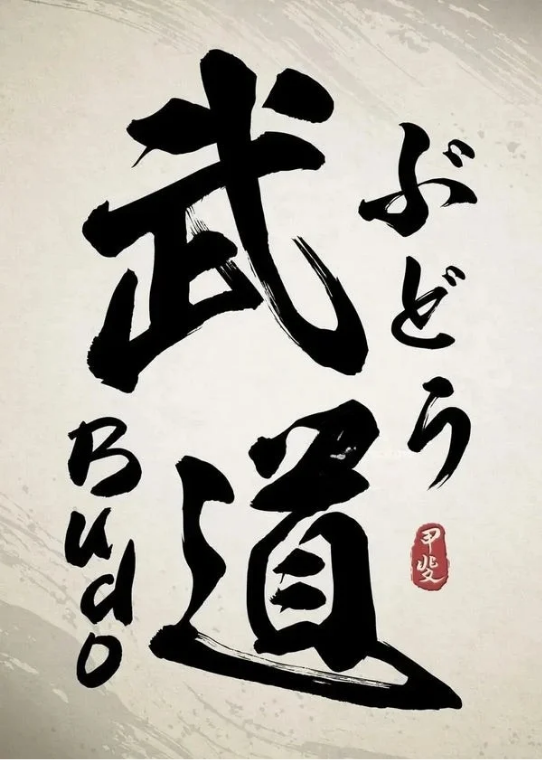 武道
ぶどう
Budo
甲斐